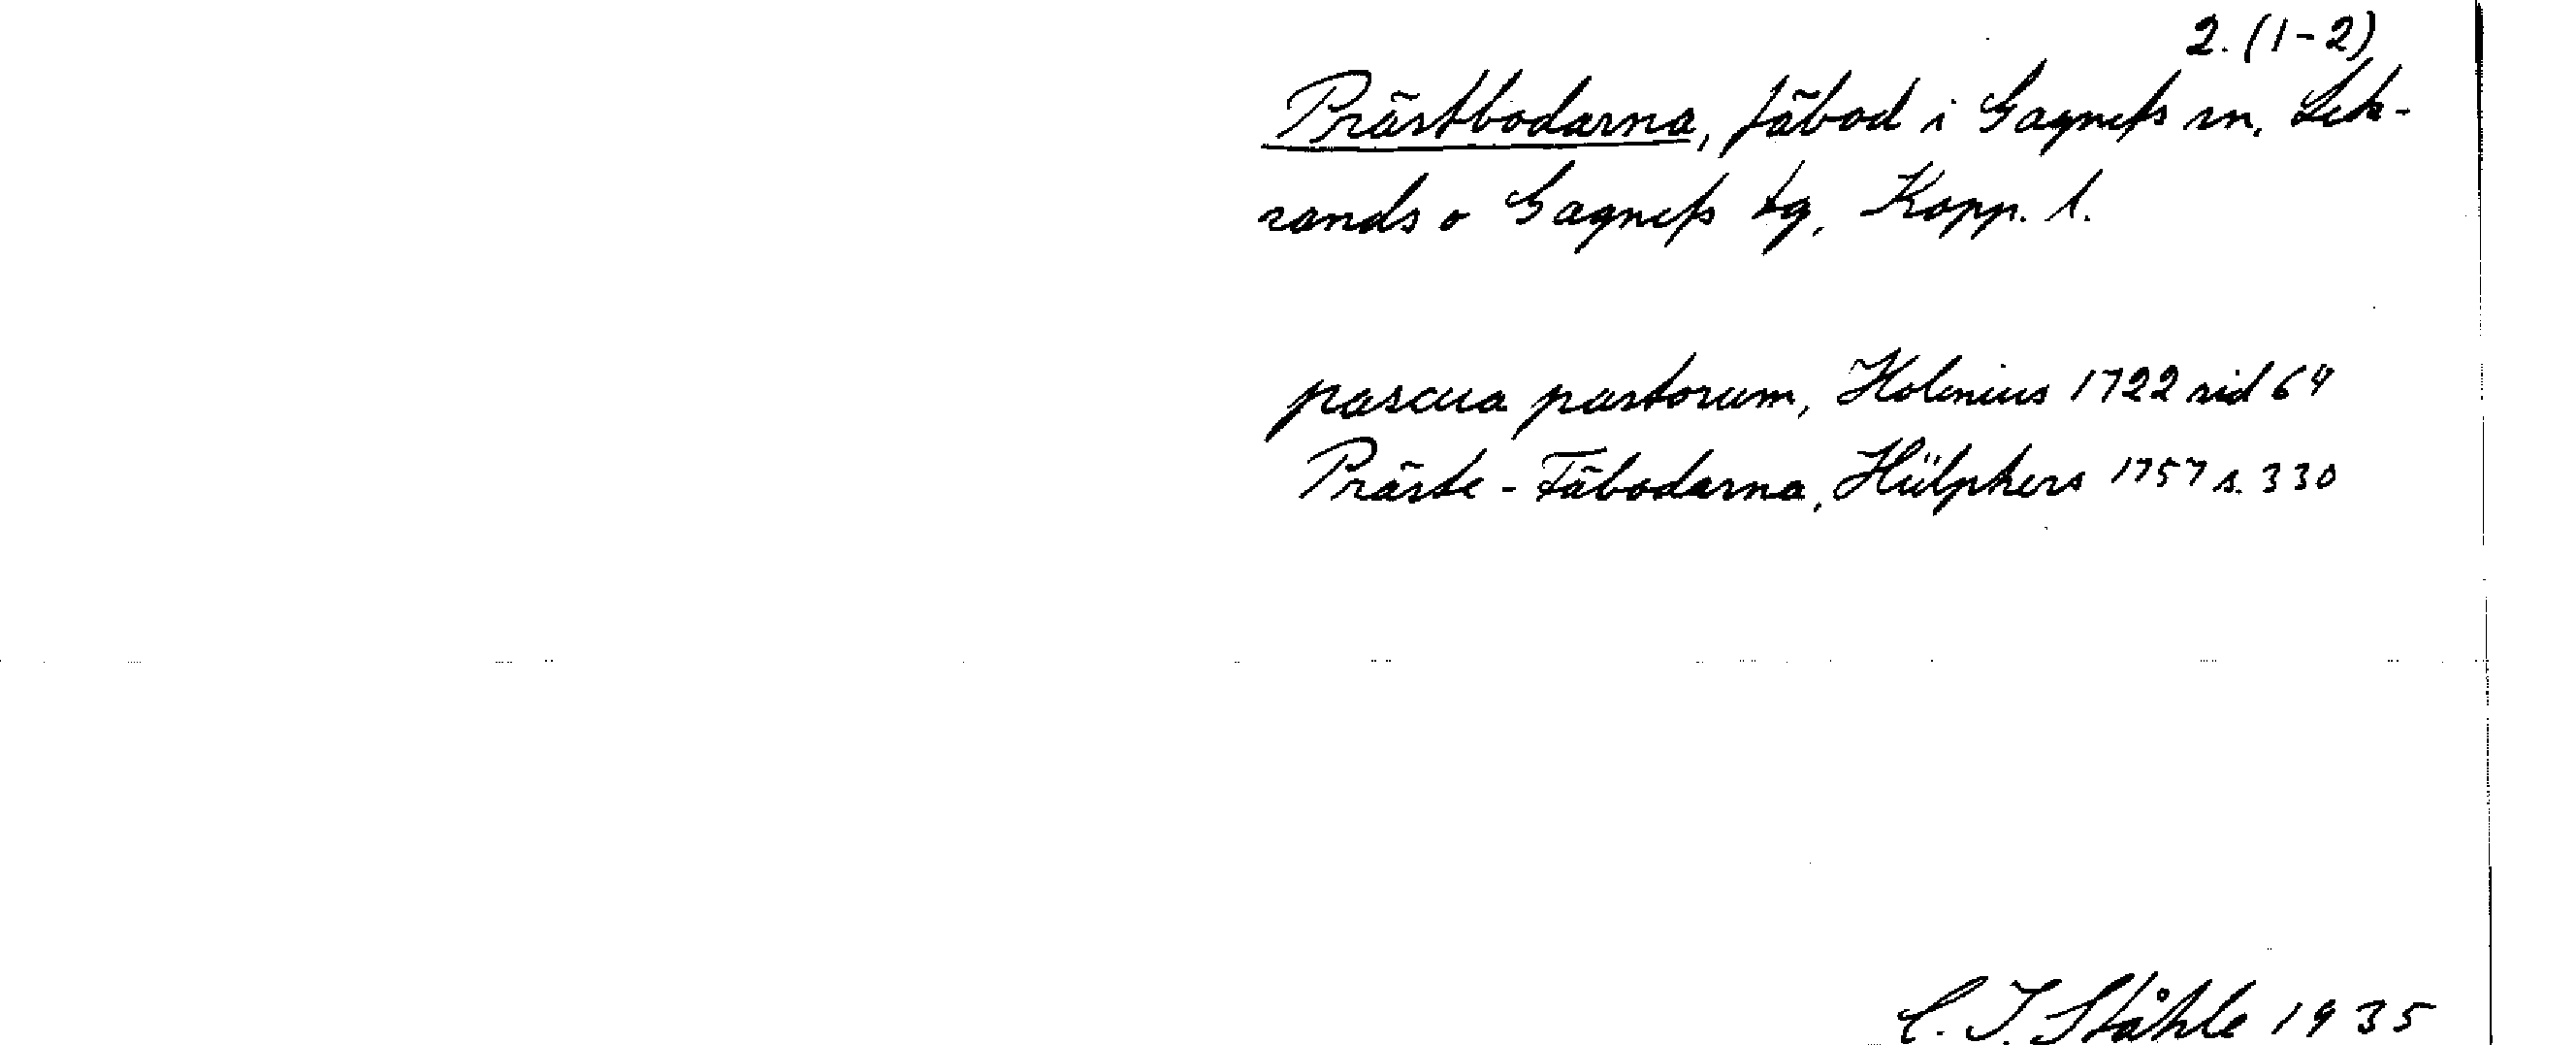 2. (1-2)
Prästbodarna, fäbod i Gagnefs sn, Lek-
sands o Gagnefs tg, Kopp. l.
pascua pastorum, Holenius 1722 sid 64
Präste-Fäbodarna, Hülphers 1757 s. 330
C. I. Ståhle 1935